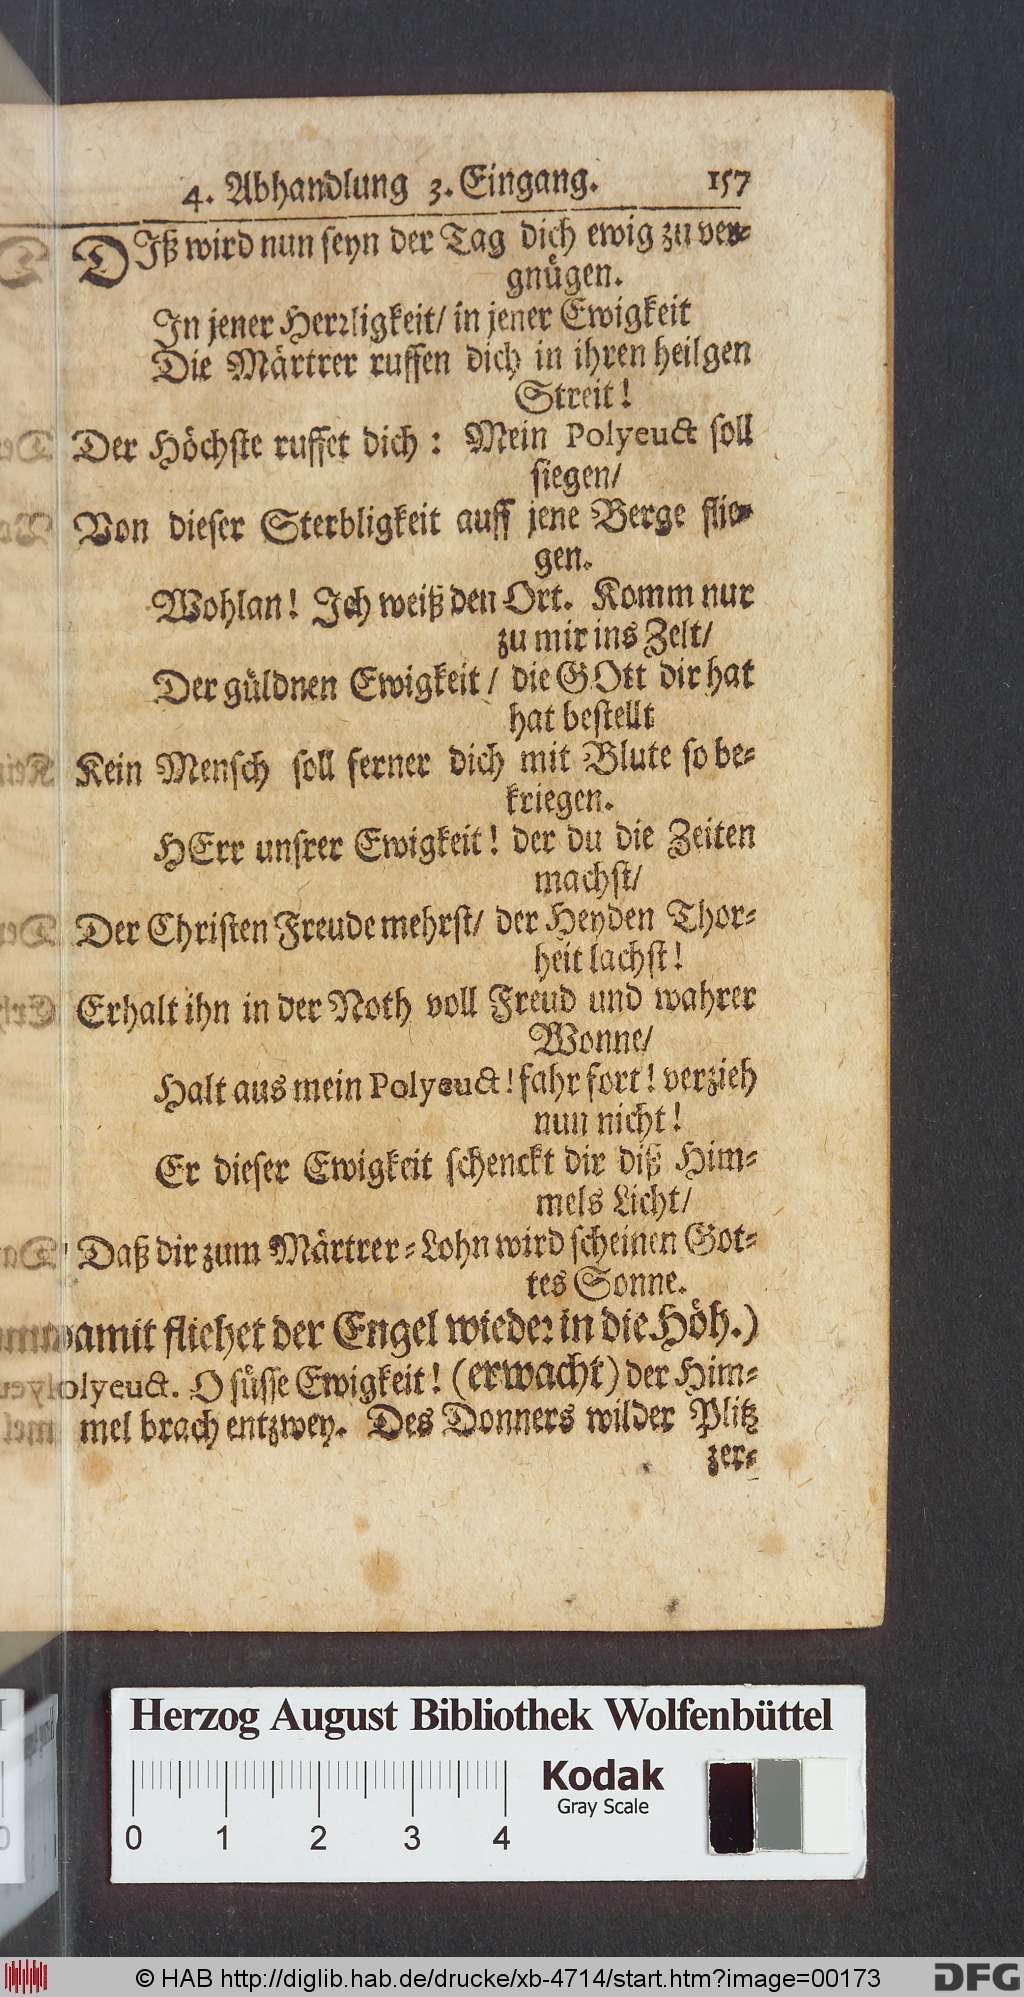 4. Abhandlung 3. Eingang. 157
DIß wird nun seyn der Tag dich ewig zu ver-
gnügen.
In jener Herrligkeit/ in jener Ewigkeit
Die Märtrer ruffen dich in ihren heilgen
Streit!
Der Höchste ruffet dich: Mein Polyeuct soll
siegen/
Von dieser Sterbligkeit auff jene Berge flie-
gen.
Wohlan! Ich weiß den Ort. Komm nur
zu mir ins Zelt/
Der güldnen Ewigkeit/ die GOtt dir hat
hat bestellt
Kein Mensch soll ferner dich mit Blute so be-
kriegen.
HErr unsrer Ewigkeit! der du die Zeiten
machst/
Der Christen Freude mehrst/ der Heyden Thor-
heit lachst!
Erhalt ihn in der Noth voll Freud und wahrer
Wonne/
Halt aus mein Polyeuct! fahr fort! verzieh
nun nicht!
Er dieser Ewigkeit schenckt dir diß Him-
mels Licht/
Daß dir zum Märtrer-Lohn wird scheinen Got-
tes Sonne.
damit fliehet der Engel wieder in die Höh.)
olyeuct. O süsse Ewigkeit! (erwacht) der Him-
mel brach entzwey. Des Donners wilder Plitz
zer-
Herzog August Bibliothek Wolfenbüttel
Kodak
Gray Scale
0 1 2 3 4
© HAB http://diglib.hab.de/drucke/xb-4714/start.htm?image=00173
DFG